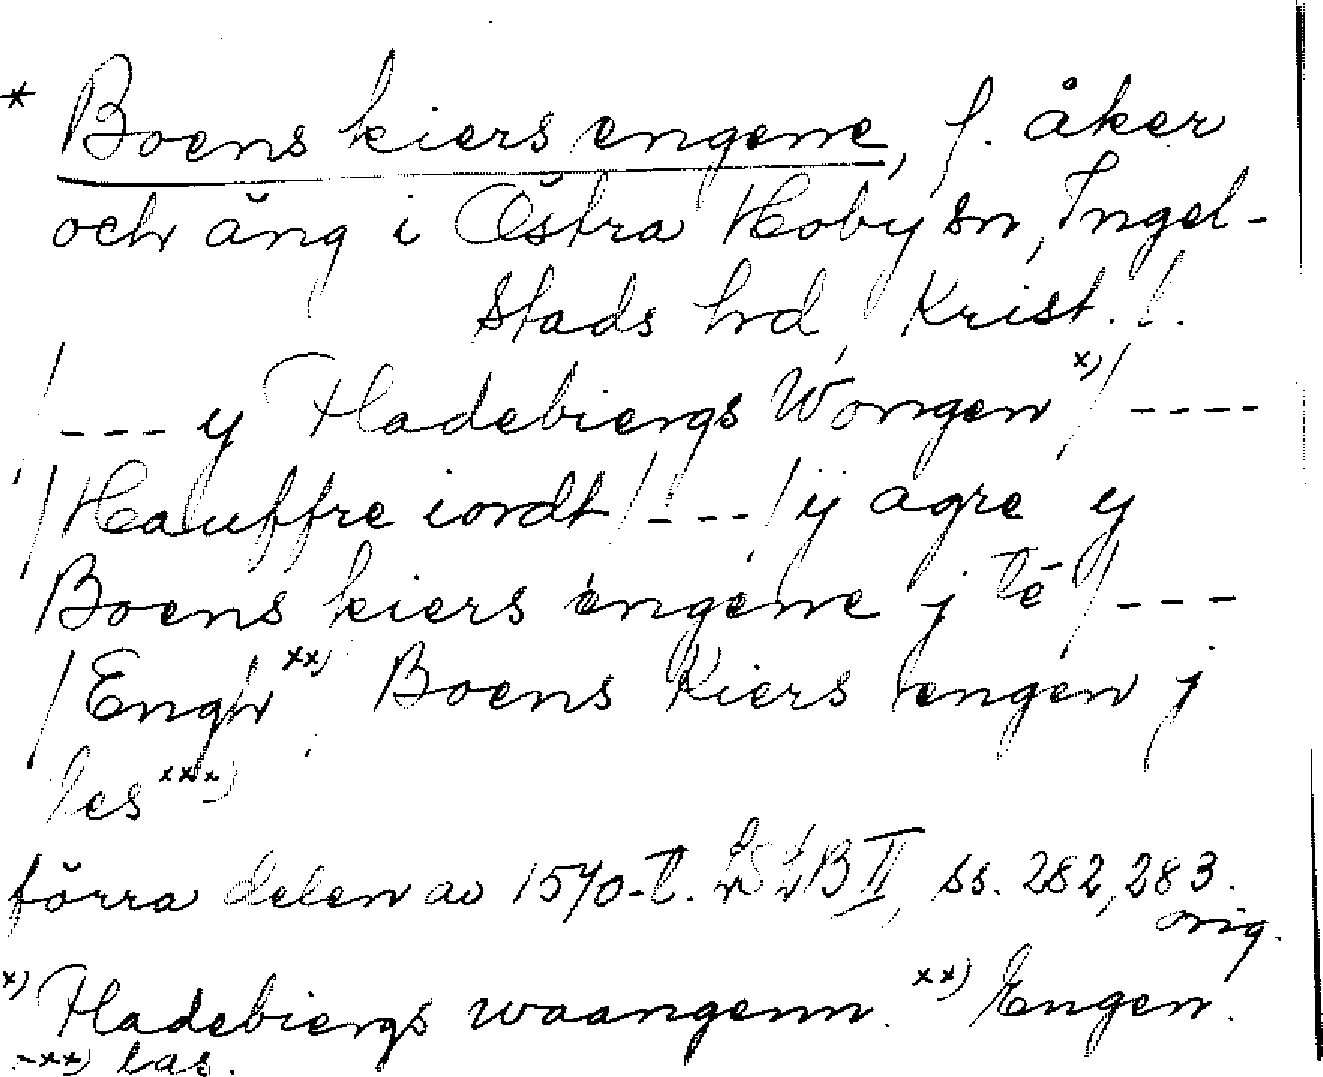 * Boens kiers engene, f. åker
och äng i Östra Hoby sn, Ingel-
stads hd, Krist. l.
/--- y Hadebiergs Wongen x) / ----
/ Hauffre iordt / --- / ij agre y
Boens kiers engene j lē / ---
/ Engh xx) Boens Kiers engen j
les xxx)
förra delen av 1570-t. LSLB II, ss. 282, 283.
orig.
x) Hadebiergs waangenn. xx) Engen.
xxx) las.